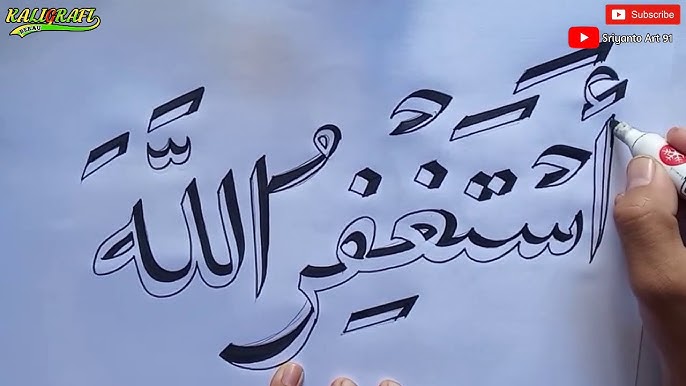 KALIGRAFI
Subscribe
Sriyanto Art 91
أَسْتَغْفِرُ اللَّهَ